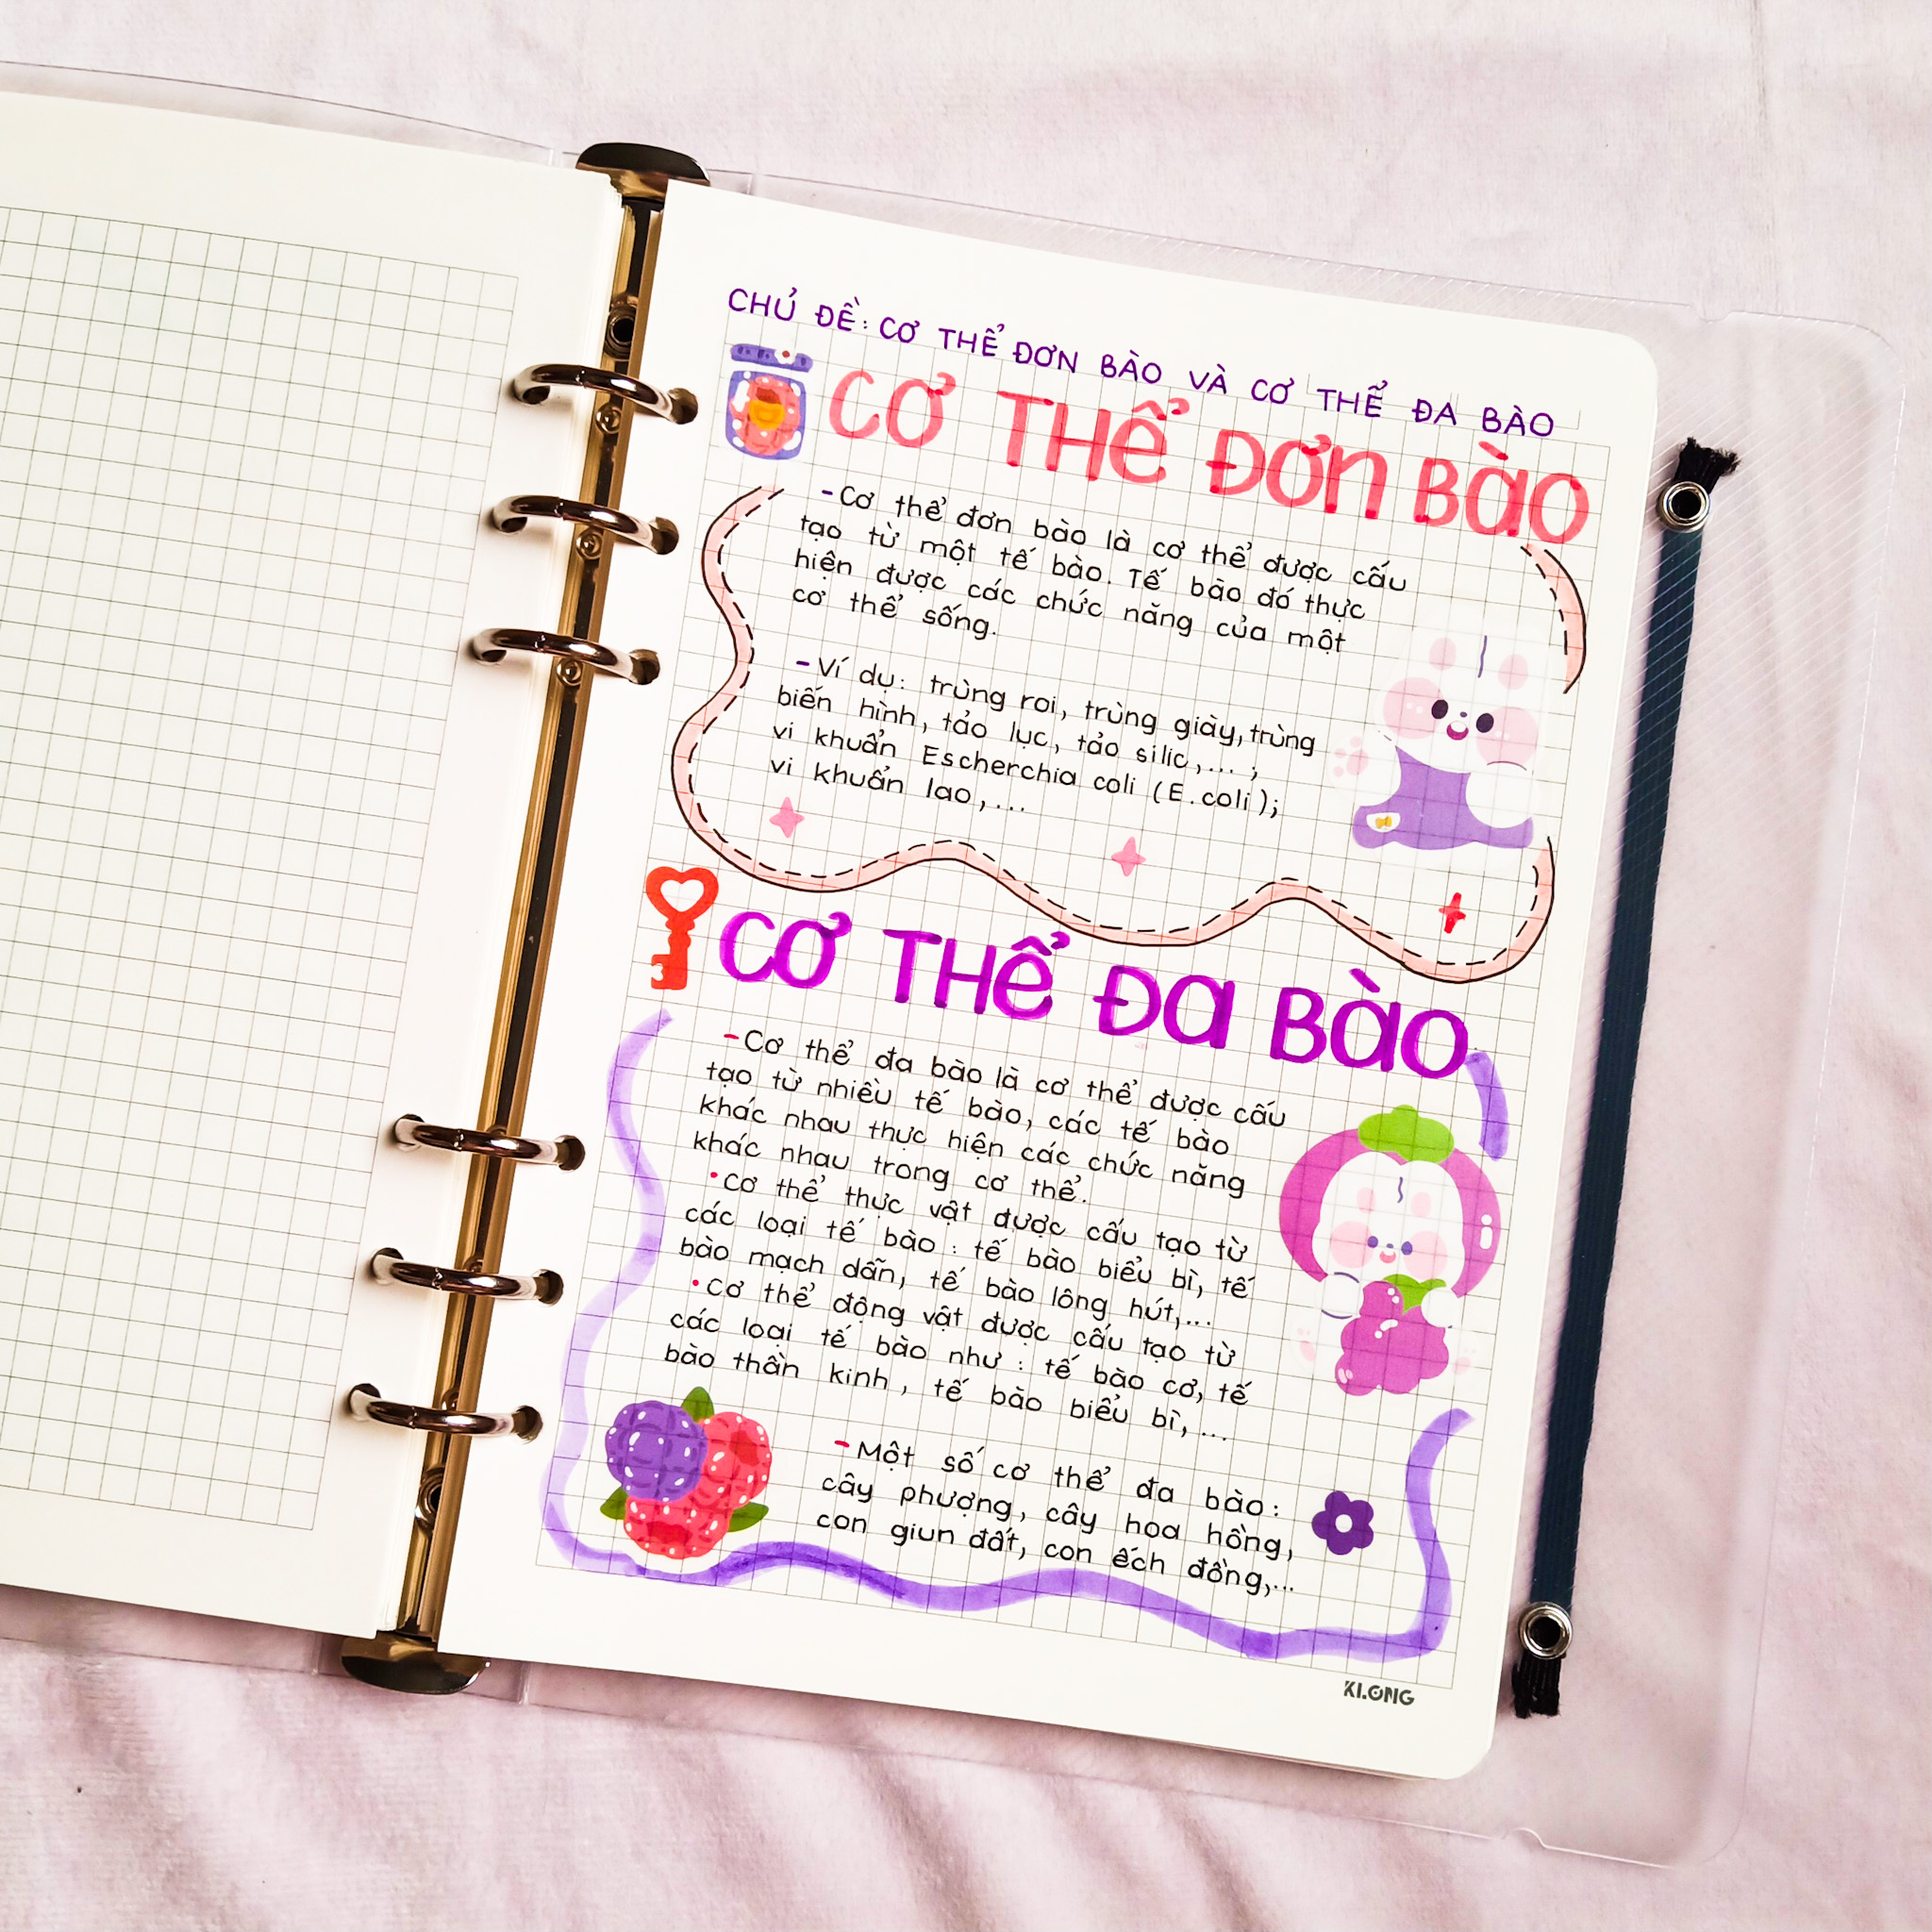 CHỦ ĐỀ: CƠ THỂ ĐƠN BÀO VÀ CƠ THỂ ĐA BÀO
CƠ THỂ ĐƠN BÀO
-Cơ thể đơn bào là cơ thể được cấu
tạo từ một tế bào. Tế bào đó thực
hiện được các chức năng của một
cơ thể sống.
-Ví dụ: trùng roi, trùng giày, trùng
biến hình, tảo lục, tảo silic,... ;
vi khuẩn Escherchia coli (E.coli);
vi khuẩn lao,...
CƠ THỂ ĐA BÀO
-Cơ thể đa bào là cơ thể được cấu
tạo từ nhiều tế bào, các tế bào
khác nhau thực hiện các chức năng
khác nhau trong cơ thể.
•Cơ thể thực vật được cấu tạo từ
các loại tế bào: tế bào biểu bì, tế
bào mạch dẫn, tế bào lông hút,...
•Cơ thể động vật được cấu tạo từ
các loại tế bào như: tế bào cơ, tế
bào thần kinh, tế bào biểu bì,...
-Một số cơ thể đa bào:
cây phượng, cây hoa hồng,
con giun đất, con ếch đồng,...
KI.ONG